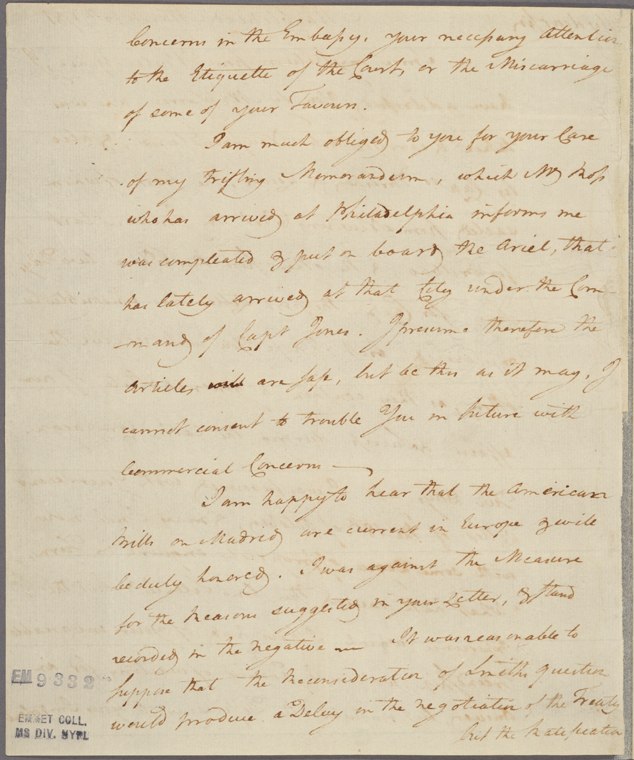 Concerns in the Embassy, your necessary Attention
to the Etiquette of the Court, or the Miscarriage
of some of your Favours.
I am much obliged to you for your Care
of my trifling Memorandum, which Mr Ross
who has arrived at Philadelphia informs me
was compleated & put on board the Ariel, that
has lately arrived at that City under the Com-
mand of Capt Jones. I presume therefore the
Articles are safe, but be this as it may, I
cannot consent to trouble You in future with
Commercial Concerns —
I am happy to hear that the American
Bills on Madrid are current in Europe & will
be duly honored. I was against the Measure
for the Reasons suggested in your Letter, & stand
recorded in the negative — It was reasonable to
suppose that the Reconsideration of question
would produce a Delay in the negotiation of the Treaty
but the Ratification
EM 9332
EMMET COLL.
MS DIV. NYPL